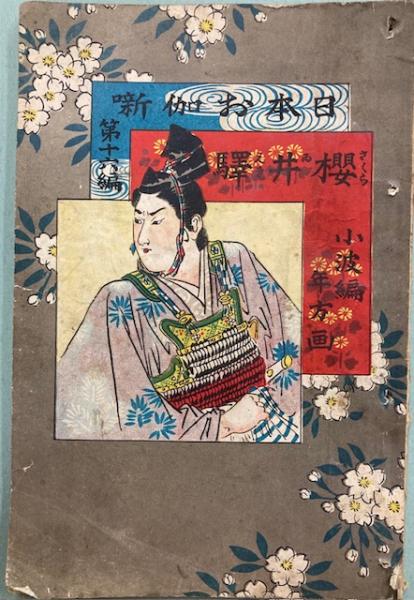 日本お伽噺
第十六編
さくら ゐ
櫻井驛
小波編
年方画